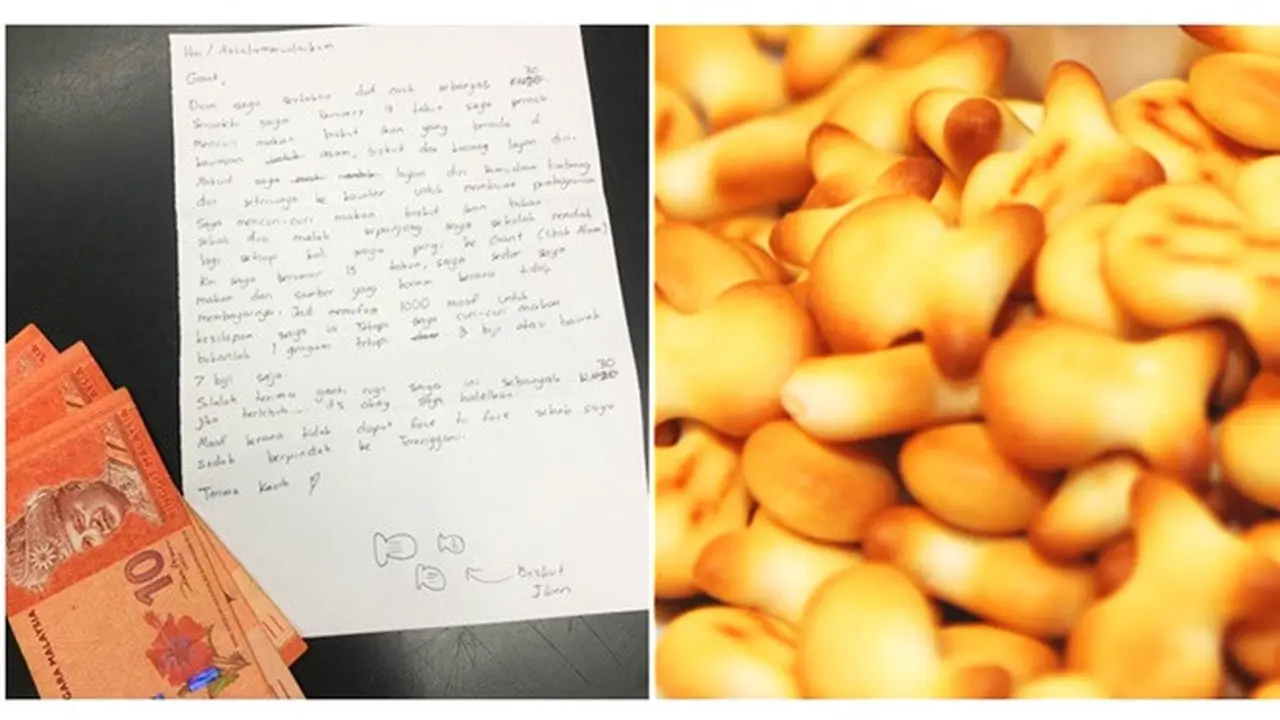 Hai / Assalammualaikum
Giant,
saya sertakan duit cash sebanyak 30
saya berumur 19 tahun saya pernah
mencuri makan biskut ikan yang berada di
bahagian asam, biskut dan kacang layan diri.
Maksud saya layan diri kemudian timbang
dan seterusnya ke kaunter untuk membuat pembayaran
Saya mencuri-curi makan biskut ikan bukan
sekali dua malah sepanjang saya sekolah rendah
lagi setiap kali saya pergi ke Giant (Shah Alam)
saya berumur 15 tahun, saya sedar saya
makan dari sumber yang haram kerana tidak
membayarnya. Jadi memohon 1000 maaf untuk
kesilapan saya ini tetapi saya curi-curi makan
bukanlah 1 genggam tetapi 3 biji atau bawah
7 biji saja.
Silalah terima ganti rugi saya ini sebanyak 30
jika terlebih saya halalkan.
Maaf kerana tidak dapat face to face sebab saya
sudah berpindah ke Terengganu.
Terima Kasih
Biskut
Ikan
10
NEGARA MALAYSIA